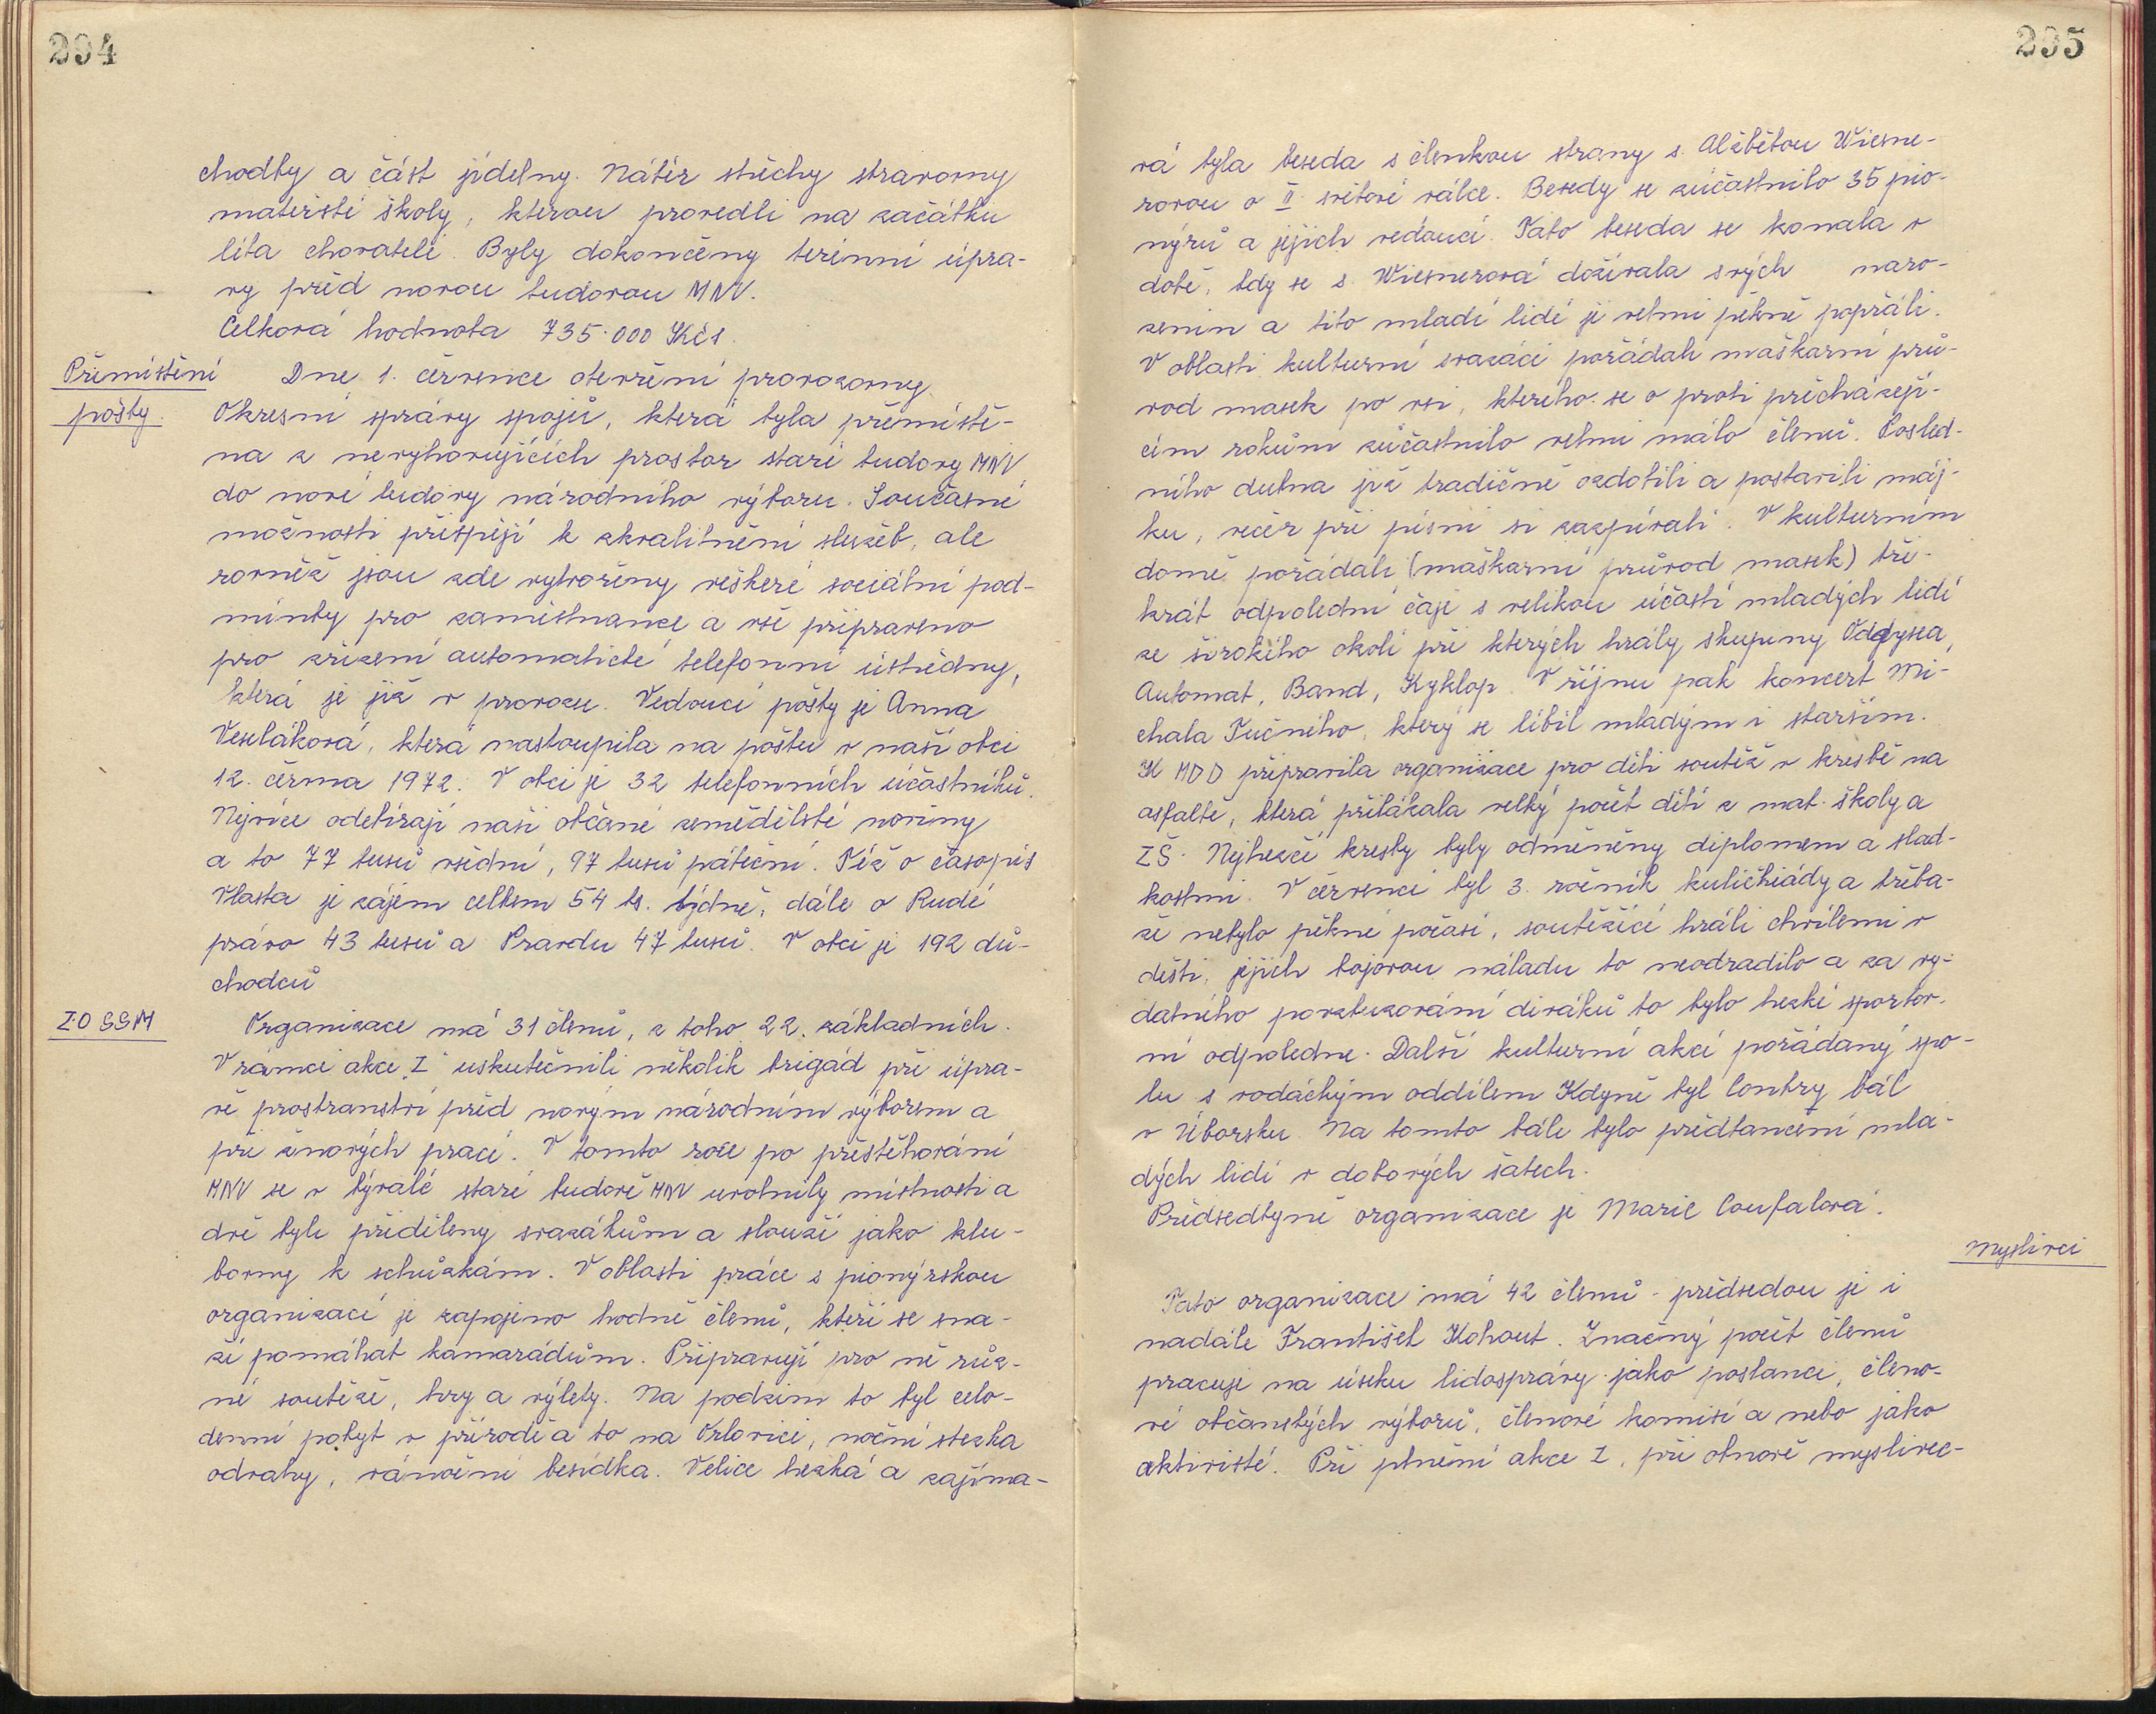 294
chodby a část jídelny. Nátěr střechy stravovny
mateřské školy, kterou provedli na začátku
léta chovatelé. Byly dokončeny terénní úpra-
vy před novou budovou MNV.
Celková hodnota 735.000 Kčs.
Přemístění
pošty.
Dne 1. července otevření provozovny
Okresní správy spojů, která byla přemístě-
na z nevyhovujících prostor staré budovy MNV
do nové budovy národního výboru. Současné
možnosti přispějí k zkvalitnění služeb, ale
rovněž jsou zde vytvořeny veškeré sociální pod-
mínky pro zaměstnance a vše připraveno
pro zřízení automatické telefonní ústředny,
která je již v provozu. Vedoucí pošty je Anna
Veseláková, která nastoupila na poštu v naší obci
12. června 1972. V obci je 32 telefonních účastníků.
Nejvíce odebírají naši občané zemědělské noviny
a to 77 kusů všední, 97 kusů páteční. Též o časopis
Vlasta je zájem celkem 54 ks. týdně, dále o Rudé
právo 43 kusů a Pravdu 47 kusů. V obci je 192 dů-
chodců
Z.O SSM
Organizace má 31 členů, z toho 22. základních.
V rámci akce „Z" uskutečnili několik brigád při úpra-
vě prostranství před novým národním výborem a
při žňových prací. V tomto roce po přestěhování
MNV se v bývalé staré budově MNV uvolnily místnosti a
dvě byly přiděleny svazákům a slouží jako klu-
bovny k schůzkám. V oblasti práce s pionýrskou
organizací je zapojeno hodně členů, kteří se sna-
ží pomáhat kamarádům. Připravují pro ně růz-
né soutěže, hry a výlety. Na podzim to byl celo-
denní pobyt v přírodě a to na Orlovici, noční stezka
odvahy, vánoční besídka. Velice hezká a zajíma-
295
vá byla beseda s členkou strany s. Alžbětou Wiesne-
rovou o II. světové válce. Besedy se zúčastnilo 35 pio-
nýrů a jejich vedoucí. Tato beseda se konala v
době, kdy se s. Wiesnerová dožívala svých naro-
zenin a tito mladí lidé jí velmi pěkně popřáli.
V oblasti kulturní svazáci pořádali maškarní prů-
vod masek po vsi, kterého se o proti přícházejí-
cím rokům zúčastnilo velmi málo členů. Posled-
ního dubna již tradičně ozdobili a postavili máj-
ku, večer při písni si zazpívali. V kulturním
domě pořádali (maškarní průvod masek) tři-
krát odpolední čaje s velikou účastí mladých lidí
ze širokého okolí při kterých hrály skupiny Oddysea,
Automat, Band, Kyklop. V říjnu pak koncert Mi-
chala Tučného, který se líbil mladým i starším.
K MDD připravila organizace pro děti soutěž v kresbě na
asfaltě, která přilákala velký počet dětí z mat. školy a
ZŠ. Nejhezčí kresby byly odměněny diplomem a slad-
kostmi. V červenci byl 3. ročník kuličkiády a třeba-
že nebylo pěkné počasí, soutěžící hráli chvílemi v
dešti, jejich bojovou náladu to neodradilo a za vy-
datného povzbuzování diváků to bylo hezké sportov-
ní odpoledne. Další kulturní akcí pořádaný spo-
lu s vodáckým oddílem Kdyně byl Contry bál
v Úborsku. Na tomto bále bylo předtančení mla-
dých lidí v dobových šatech.
Předsedkyně organizace je Marie Coufalová.
Myslivci
Tato organizace má 42 členů - předsedou je i
nadále František Kohout. Značný počet členů
pracuje na úseku lidosprávy jako poslanci, členo-
vé občanských výborů, členové komisí a nebo jako
aktivisté. Při plnění akce Z, při obnově myslivec-